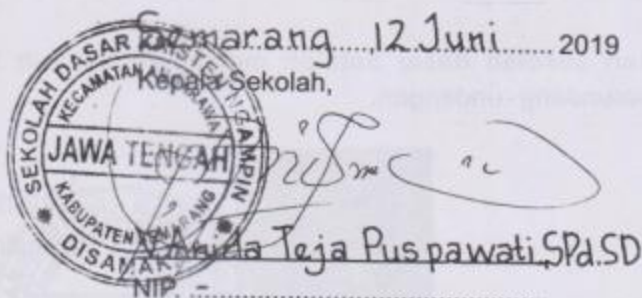 Semarang, 12 Juni 2019
Kepala Sekolah,
SEKOLAH DASAR KRISTEN NGAMPIN
KECAMATAN AMBARAWA
JAWA TENGAH
KABUPATEN SEMARANG
DISAMAKAN
Teja Puspawati, SPd.SD
NIP. -